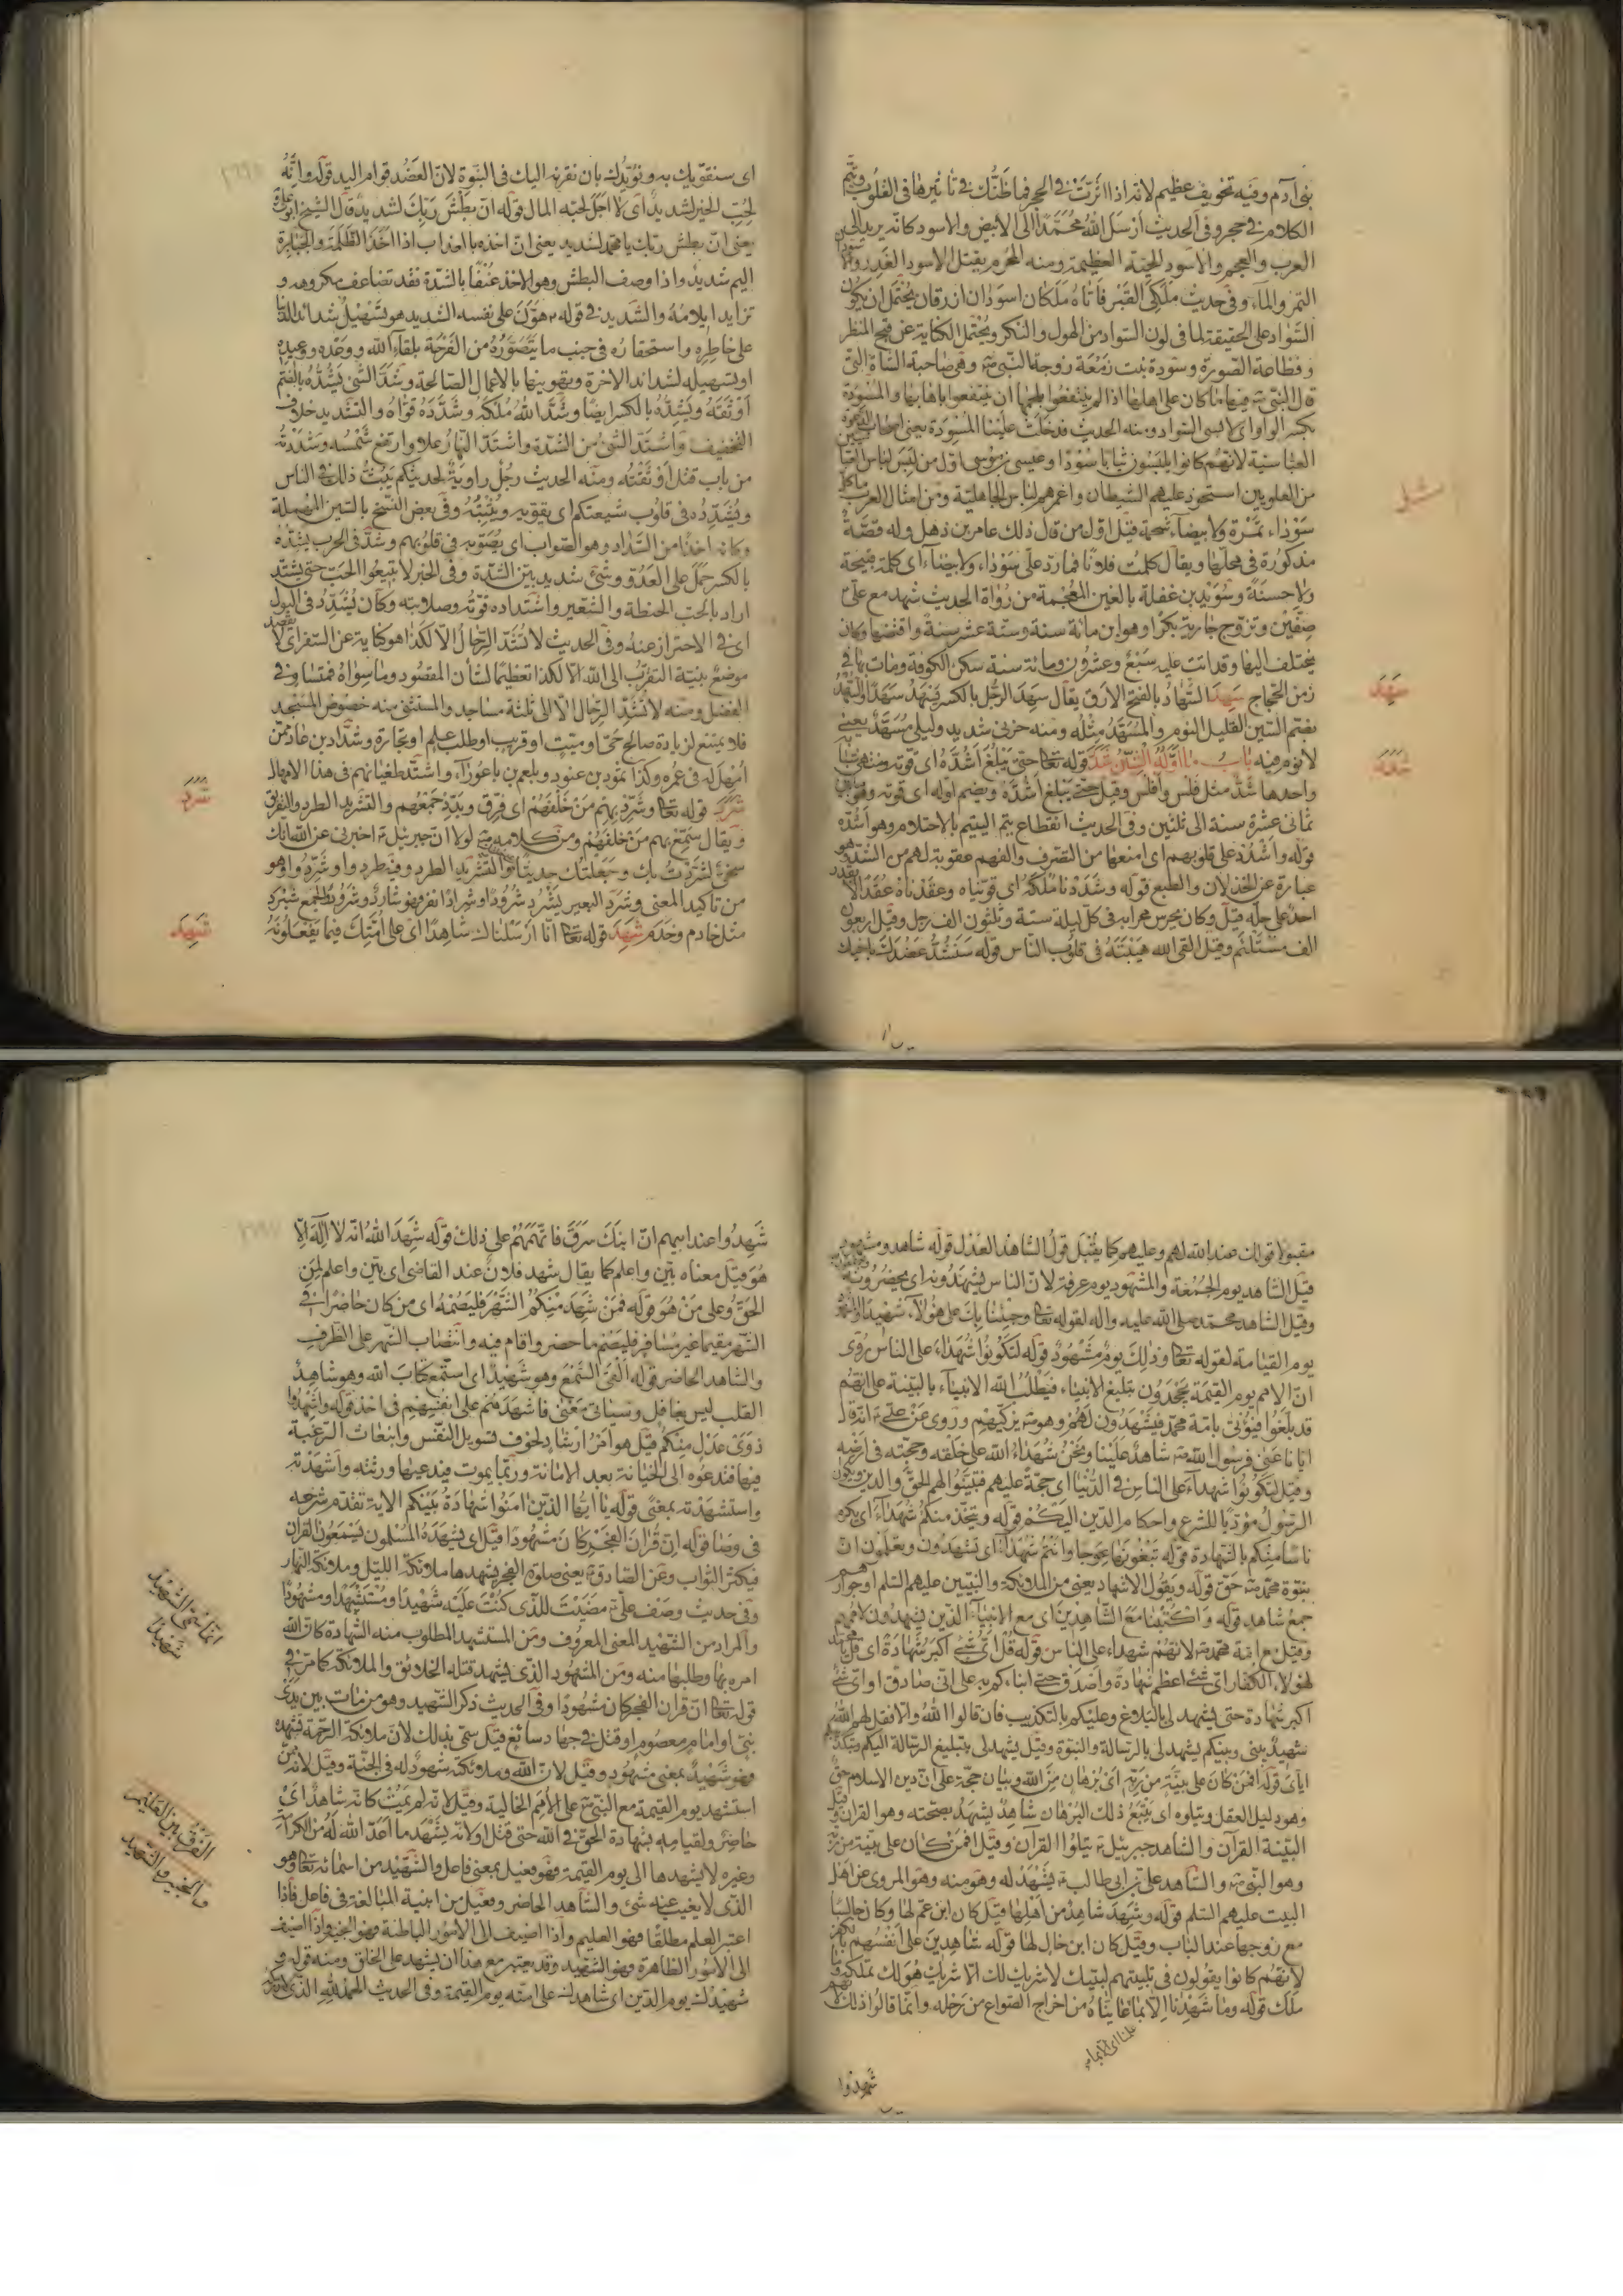 بنى آدم وفيه تخويف عظيم لانه اذا اثرت فى الحجر فما ظنك فى تاثيرها فى القلوب
الكلام فى حجر وفى الحديث ارسل الله محمدا الى الابيض والاسود كانه يريد
العرب والعجم والاسود للحية العظيمة ومنه المحرم يقتل الاسود الغدر
التمر والماء وفى حديث ملكى القبر فاتاه ملكان اسودان ازرقان يحتمل ان يكون
السواد على الحقيقة لما فى لون السواد من الهول والنكر ويحتمل الكناية عن قبح المنظر
وفظاعة الصورة وسودة بنت زمعة زوجة النبى وهى صاحبة الشاة التى
قال النبى فيها ما كان على اهلها اذا لم ينتفعوا بلحمها ان ينتفعوا باهابها والمسودة
بكسر الواو اى لابسى السواد ومنه الحديث فدخلت علينا المسودة يعنى اصحاب
العباسية لانهم كانوا يلبسون ثيابا سودا وعيسى بن موسى اول من لبس لباس
من العلويين استحوذ عليهم الشيطان واغمرهم لباس الجاهلية ومن امثال العرب
سوداء تمرة ولا بيضاء شحمة قيل اول من قال ذلك عامر بن ذهل وله قصة
مذكورة فى محلها ويقال كلمت فلانا فما رد على سوداء ولا بيضاء اى كلمة قبيحة
ولا حسنة وسويد بن غفلة بالغين المعجمة من رواة الحديث شهد مع على
صفين وتزوج جارية بكرا وهو ابن مائة سنة وستة عشر سنة وافتضها وكان
يختلف اليها وقد اتت عليه سبع وعشرون ومائة سنة سكن الكوفة ومات بها فى
زمن الحجاج سهد السهاد بالفتح الارق يقال سهد الرجل بالكسر يسهد سهدا والسهد
بضم السين القليل النوم والمسهد مثله ومنه حزنى شديد وليلى مسهد يعنى
لا نوم فيه باب ما اوله الشين شدد قوله تعا حتى يبلغ اشده اى قوته
واحدها شد مثل فلس وافلس وقيل حتى يبلغ اشده وبضم اوله اى قوته وهو
ثمانى عشرة سنة الى ثلثين وفى الحديث انقطاع يتم اليتيم بالاحتلام وهو اشده
قوله واشدد على قلوبهم اى امنعها من التصرف والفهم عقوبة لهم من الشد
عبارة عن الخذلان والطبع قوله وشددنا ملكه اى قويناه وعقدناه عقدا لا
احد على حله قيل وكان يحرس محرابه فى كل ليلة ستة وثلثون الف رجل وقيل اربعون
الف مستلئم وقيل القى الله هيبته فى قلوب الناس قوله سنشد عضدك باخيك
سهد
شدد
اى سنقويك به ونؤيدك بان نقرنه اليك فى النبوة لان العضد قوام اليد قوله وانه
لحب الخير لشديد اى لاجل لحبه المال قوله ان بطش ربك لشديد قال الشيخ ابو على
يعنى ان بطش ربك يا محمد لشديد يعنى ان اخذه بالعذاب اذا اخذ الظلمة والجبابرة
اليم شديد واذا وصف البطش وهو الاخذ عنفا بالشدة فقد تضاعف مكروهه و
تزايد ايلامه والشديد فى قوله هون على نفسه الشديد هو تسهيل شدائد الدنيا
على خاطره واستحقاره فى جنب ما يتصوره من الفرحة بلقاء الله ووعده ووعيده
او تسهيله لشدائد الاخرة وتهوينها بالاعمال الصالحة وشد الشى يشده بالضم
اوثقه ويشده بالكسر ايضا وشد الله ملكه وشدده قواه والتشديد خلاف
التخفيف واشتد الشى من الشدة واشتد النهار علا وارتفع شمسه وشددته
من باب قتل اوثقته ومنه الحديث رجل راوية لحديثكم يبث ذلك فى الناس
ويشدده فى قلوب شيعتكم اى يقويه ويثبته وفى بعض النسخ بالسين المهملة
وكانه اخذا من السداد وهو الصواب اى يصوبه فى قلوبهم وشد فى الحرب يشده
بالكسر حمل على العدو وشى شديد بين الشدة وفى الخبر لا تبيعوا الحب حتى يشتد
اراد بالحب الحنطة والشعير واشتداده قوته وصلابته وكان يشدد فى البول
اى فى الاحتراز عنه وفى الحديث لا تشد الرحال الا لكذا هو كناية عن السفر اى لا يقصد
موضع بنية التقرب الى الله الا لكذا تعظيما لشان المقصود وما سواه فمتساو فى
الفضل ومنه لا تشد الرحال الا الى ثلثة مساجد والمستثنى منه خصوص المسجد
فلا يمتنع لزيادة صالح حى او ميت او قريب او طلب علم او تجارة وشداد بن عاد ممن
امهل له فى عمره وكذا نمرود بن عنود وبلعم بن باعوراء واشتد طغيانهم فى هذا الامهال
شرد قوله تعا وشرد بهم من خلفهم اى فرق وبدد جمعهم والتشريد الطرد والتفريق
ويقال سمع بهم من خلفهم ومن كلامه لولا ان جبرئيل اخبرنى عن الله انك
سخى لشردت بك وجعلتك حديثا التشريد الطرد وفيطردوا وشردوا هو
من تاكيد المعنى وشرد البعير يشرد شرودا وشرادا نفر فهو شارد وشرود والجمع شرد
مثل خادم وخدم شهد قوله تعا انا ارسلناك شاهدا اى على امتك فيما يفعلونه
شرد
شهد
مقبولا قولك عند الله لهم وعليهم كما يقبل قول الشاهد العدل قوله شاهد ومشهود
قيل الشاهد يوم الجمعة والمشهود يوم عرفة لان الناس يشهدونه اى يحضرونه
وقيل الشاهد محمد صلى الله عليه واله لقوله تعا وجئنا بك على هؤلاء شهيدا والمشهود
يوم القيامة لقوله تعا وذلك يوم مشهود قوله لتكونوا شهداء على الناس روى
ان الامم يوم القيمة يجحدون بتبليغ الانبياء فيطلب الله الانبياء بالبينة على انهم
قد بلغوا فيؤتى بامة محمد فيشهدون لهم وهو يزكيهم وروى عن على انه قال
ايانا عنى فرسول الله شاهد علينا ونحن شهداء الله على خلقه وحجته فى ارضه
وقيل لتكونوا شهداء على الناس فى الدنيا اى حجة عليهم فتبينوا لهم الحق والدين ويكون
الرسول مؤديا للشرع واحكام الدين اليكم قوله ويتخذ منكم شهداء اى يكرم
ناسا منكم بالشهادة قوله تبغونها عوجا وانتم شهداء اى تشهدون وتعلمون ان
نبوة محمد حق قوله ويقول الاشهاد يعنى من الملائكة والنبيين عليهم السلم او جوارحهم
جمع شاهد قوله واكتبنا مع الشاهدين اى مع الانبياء الذين يشهدون لاممهم
وقيل مع امة محمد لانهم شهداء على الناس قوله قل اى شى اكبر شهادة اى قل يا محمد
لهؤلاء الكفار اى شى اعظم شهادة واصدق حتى انباءكم به على انى صادق او اى شى
اكبر شهادة حتى يشهد لى بالبلاغ وعليكم بالتكذيب فان قالوا الله والا فقل لهم الله
شهيد بينى وبينكم يشهد لى بالرسالة والنبوة وقيل يشهد لى بتبليغ الرسالة اليكم وتكذيبكم
اياى قوله افمن كان على بينة من ربه اى برهان من الله وبيان حجة على ان دين الاسلام حق
وهو دليل العقل ويتلوه اى يتبع ذلك البرهان شاهد يشهد بصحته وهو القران وقيل
البينة القرآن والشاهد جبرئيل يتلوا القرآن وقيل افمن كان على بينة من ربه
وهو النبى والشاهد على بن ابى طالب يشهد له وهو منه وهو المروى عن اهل
البيت عليهم السلم قوله وشهد شاهد من اهلها قيل كان ابن عم لها وكان جالسا
مع زوجها عند الباب وقيل كان ابن خال لها قوله شاهدين على انفسهم بالكفر
لانهم كانوا يقولون فى تلبيتهم لبيك لا شريك لك الا شريك هو لك تملكه وما
ملك قوله وما شهدنا الا بما عايناه من اخراج الصواع من رحله وانما قالوا ذلك
شهدوا
شهدوا عند ابيهم ان ابنك سرق فاتهمهم على ذلك قوله شهد الله انه لا اله الا
هو قيل معناه بين واعلم كما يقال شهد فلان عند القاضى اى بين واعلم لمن
الحق وعلى من هو قوله فمن شهد منكم الشهر فليصمه اى من كان حاضرا فى
الشهر مقيما غير مسافر فليصم ما حضر واقام فيه وانتصاب الشهر على الظرف
والشاهد الحاضر قوله القى السمع وهو شهيد اى استمع كتاب الله وهو شاهد
القلب ليس بغافل وسياتى معنى فاشهدهم على انفسهم فى اخذ قوله واشهدوا
ذوى عدل منكم قيل هو امر ارشاد لخوف تسويل النفس وانبعاث الرغبة
فيها فتدعوه الى الخيانة بعد الامانة وربما يموت فيدعيها ورثته واشهدته
واستشهدته بمعنى قوله يا ايها الذين امنوا شهادة بينكم الاية تقدم شرحه
فى وصا قوله ان قران الفجر كان مشهودا قيل اى يشهده المسلمون يسمعون القران
فيكثر الثواب وعن الصادق يعنى صلوة الفجر يشهدها ملائكة الليل وملائكة النهار
وفى حديث وصف على مضيت للذى كنت عليه شهيدا ومستشهدا ومشهودا
والمراد من الشهيد المعنى المعروف ومن المستشهد المطلوب منه الشهادة كان الله
امره بها وطلبها منه ومن المشهود الذى يشهد قتله الخلائق والملائكة كما مر فى
قوله تعا ان قران الفجر كان مشهودا وفى الحديث ذكر الشهيد وهو من مات بين يدى
نبى او امام معصوم او قتل فى جهاد سائغ قيل سمى بذلك لان ملائكة الرحمة تشهده
فهو شهيد بمعنى مشهود وقيل لان الله وملائكته شهود له فى الجنة وقيل لانه ممن
استشهد يوم القيمة مع النبى على الامم الخالية وقيل لانه لم يمت كانه شاهد اى
حاضر ولقيامه بشهادة الحق فى الله حتى قتل او لانه يشهد ما اعد الله له من الكرامة
وغيره لا يشهدها الى يوم القيمة فهو فعيل بمعنى فاعل والشهيد من اسمائه تعا وهو
الذى لا يغيب عنه شى والشاهد الحاضر وفعيل من ابنية المبالغة فى فاعل فاذا
اعتبر العلم مطلقا فهو العليم واذا اضيف الى الامور الباطنة فهو الخبير واذا اضيف
الى الامور الظاهرة فهو الشهيد وقد يعتبر مع هذا ان يشهد على الخلق ومنه قوله و
شهيدك يوم الدين اى شاهدك على امته يوم القيمة وفى الحديث الحمد لله الذى
انما سمى الشهيد
شهيدا
الفرق بين العليم
والخبير والشهيد